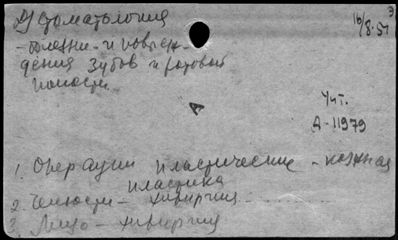 Стоматология
16/8-51
3
-болезни- и повреж-
дения зубов и ротовой
полости.
Чит.
А-11979
A
1. Операции пластические - кожная
пластика
2. Челюсти - хирургия
3. Лицо - хирургия